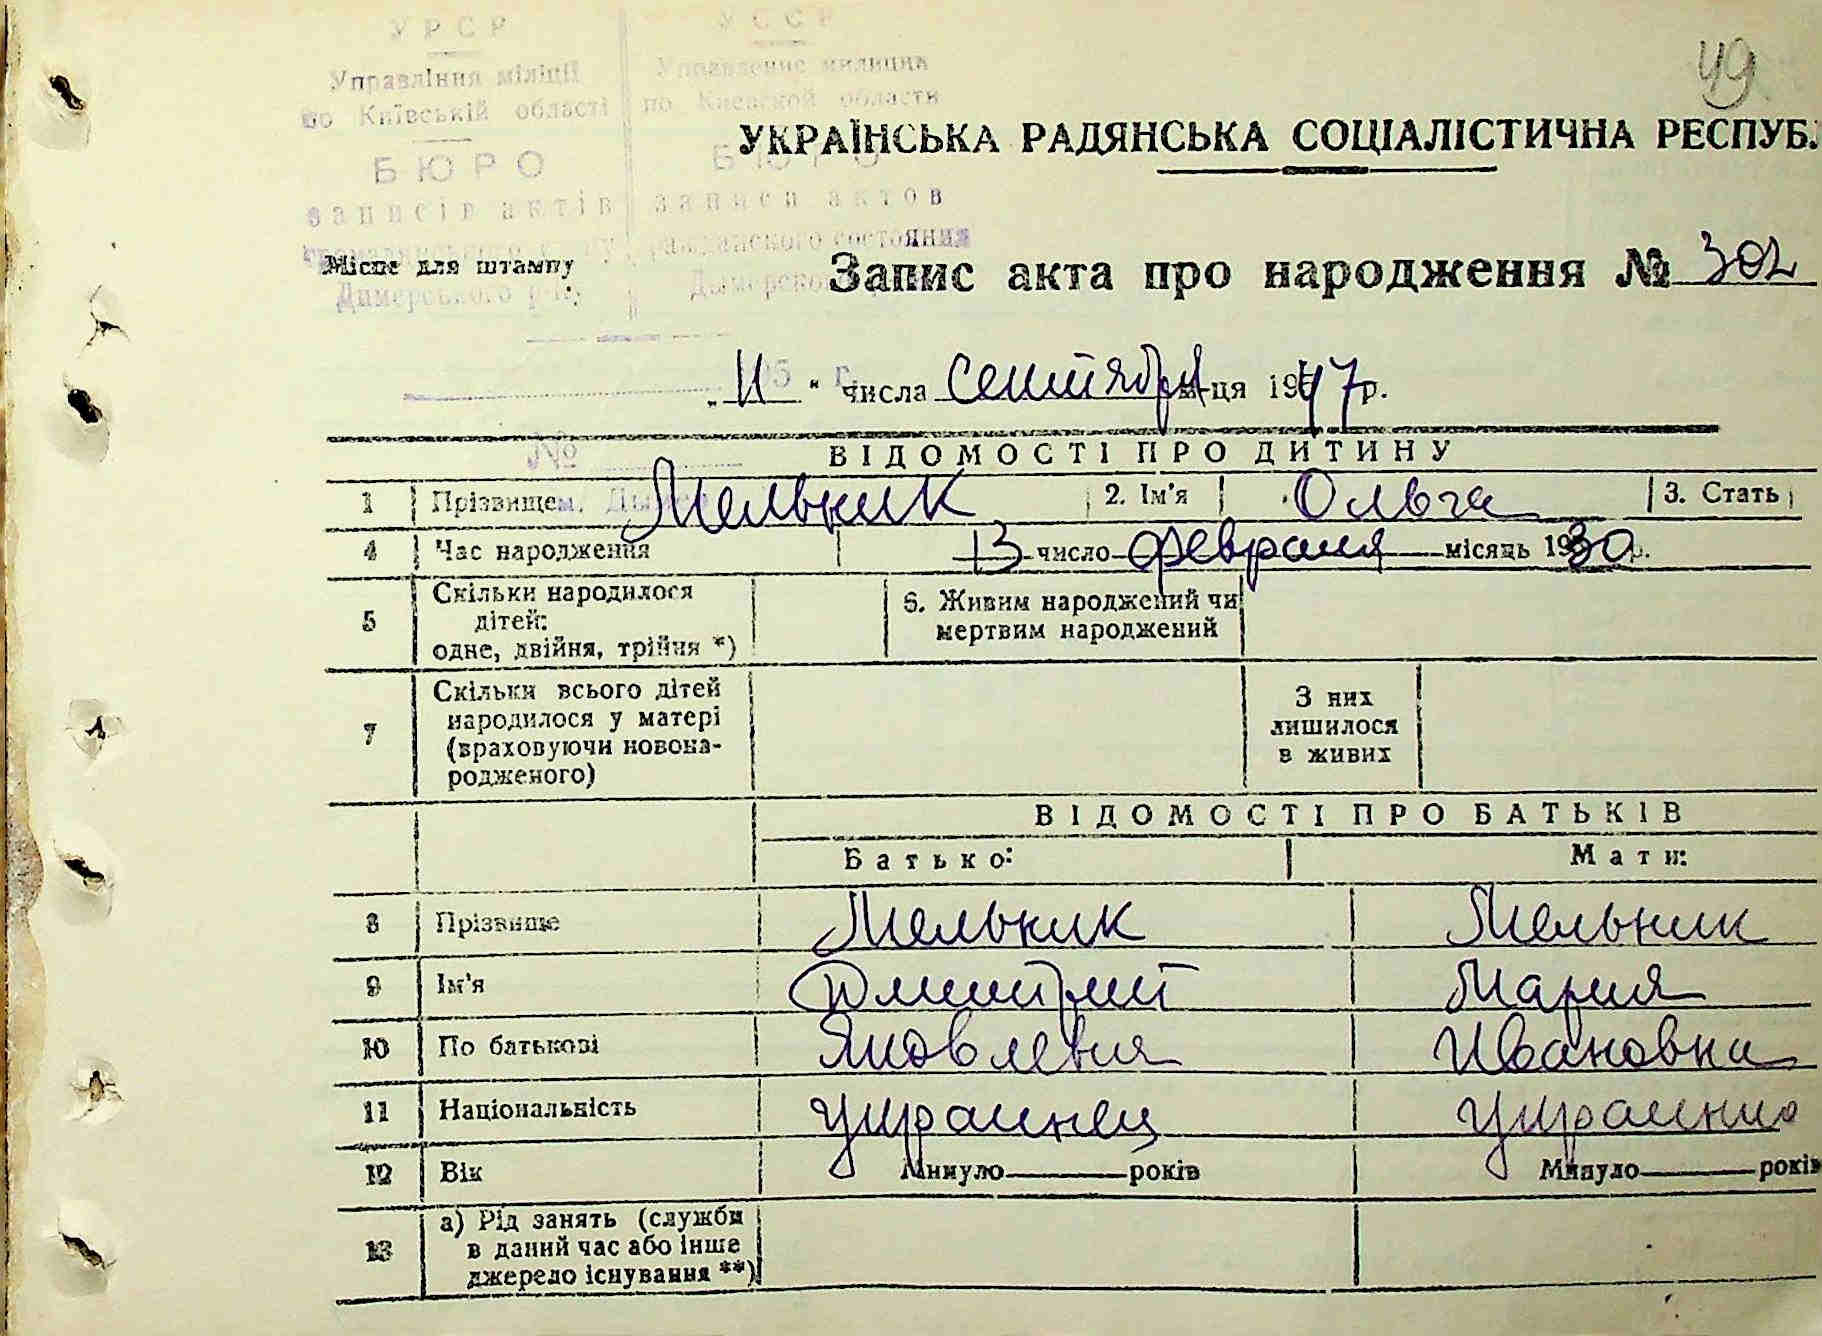 49
УРСР УССР
Управління міліції Управление милиции
по Київській області по Киевской области
УКРАЇНСЬКА РАДЯНСЬКА СОЦІАЛІСТИЧНА РЕСПУБ
БЮРО БЮРО
записів актів записи актов
громадянського стану гражданского состояния
Місце для штампу
Запис акта про народження № 302
Димерського р-ну Дымерского
„ 11 " числа сентября м-ця 1947 р.
195 г.
№
ВІДОМОСТІ ПРО ДИТИНУ
1 Прізвище Мельник 2. Ім'я Ольга 3. Стать
м. Дымер
4 Час народження 13 число февраля місяць 1930 р.
5 Скільки народилося дітей: одне, двійня, трійня *) 6. Живим народжений чи мертвим народжений
7 Скільки всього дітей народилося у матері (враховуючи новона-родженого) З них лишилося в живих
ВІДОМОСТІ ПРО БАТЬКІВ
Батько: Мати:
8 Прізвище Мельник Мельник
9 Ім'я Дмитрий Мария
10 По батькові Яковлевич Ивановна
11 Національність украинец украинка
12 Вік Минуло років Минуло років
13 а) Рід занять (служби в даний час або інше джерело існування **)